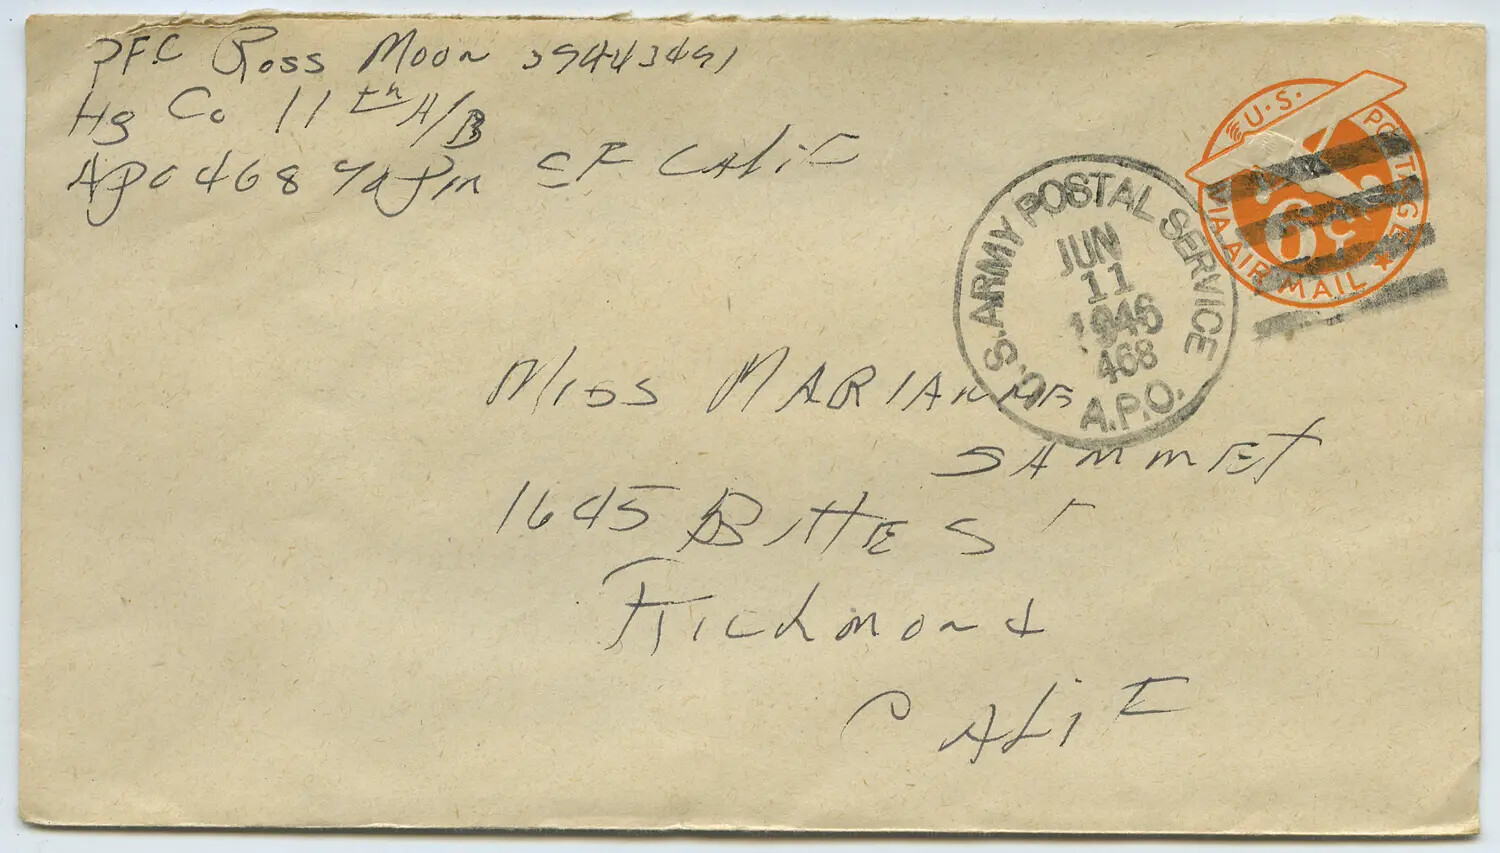 PFC Ross Moon 39443491
Hq Co 11th A/B
APO 468 % PM SF CALIF
U.S. POSTAGE
6¢
VIA AIR MAIL
U.S. ARMY POSTAL SERVICE
JUN
11
1946
468
A.P.O.
MISS MARIANNE
SAMMET
1645
Richmond
CALIF